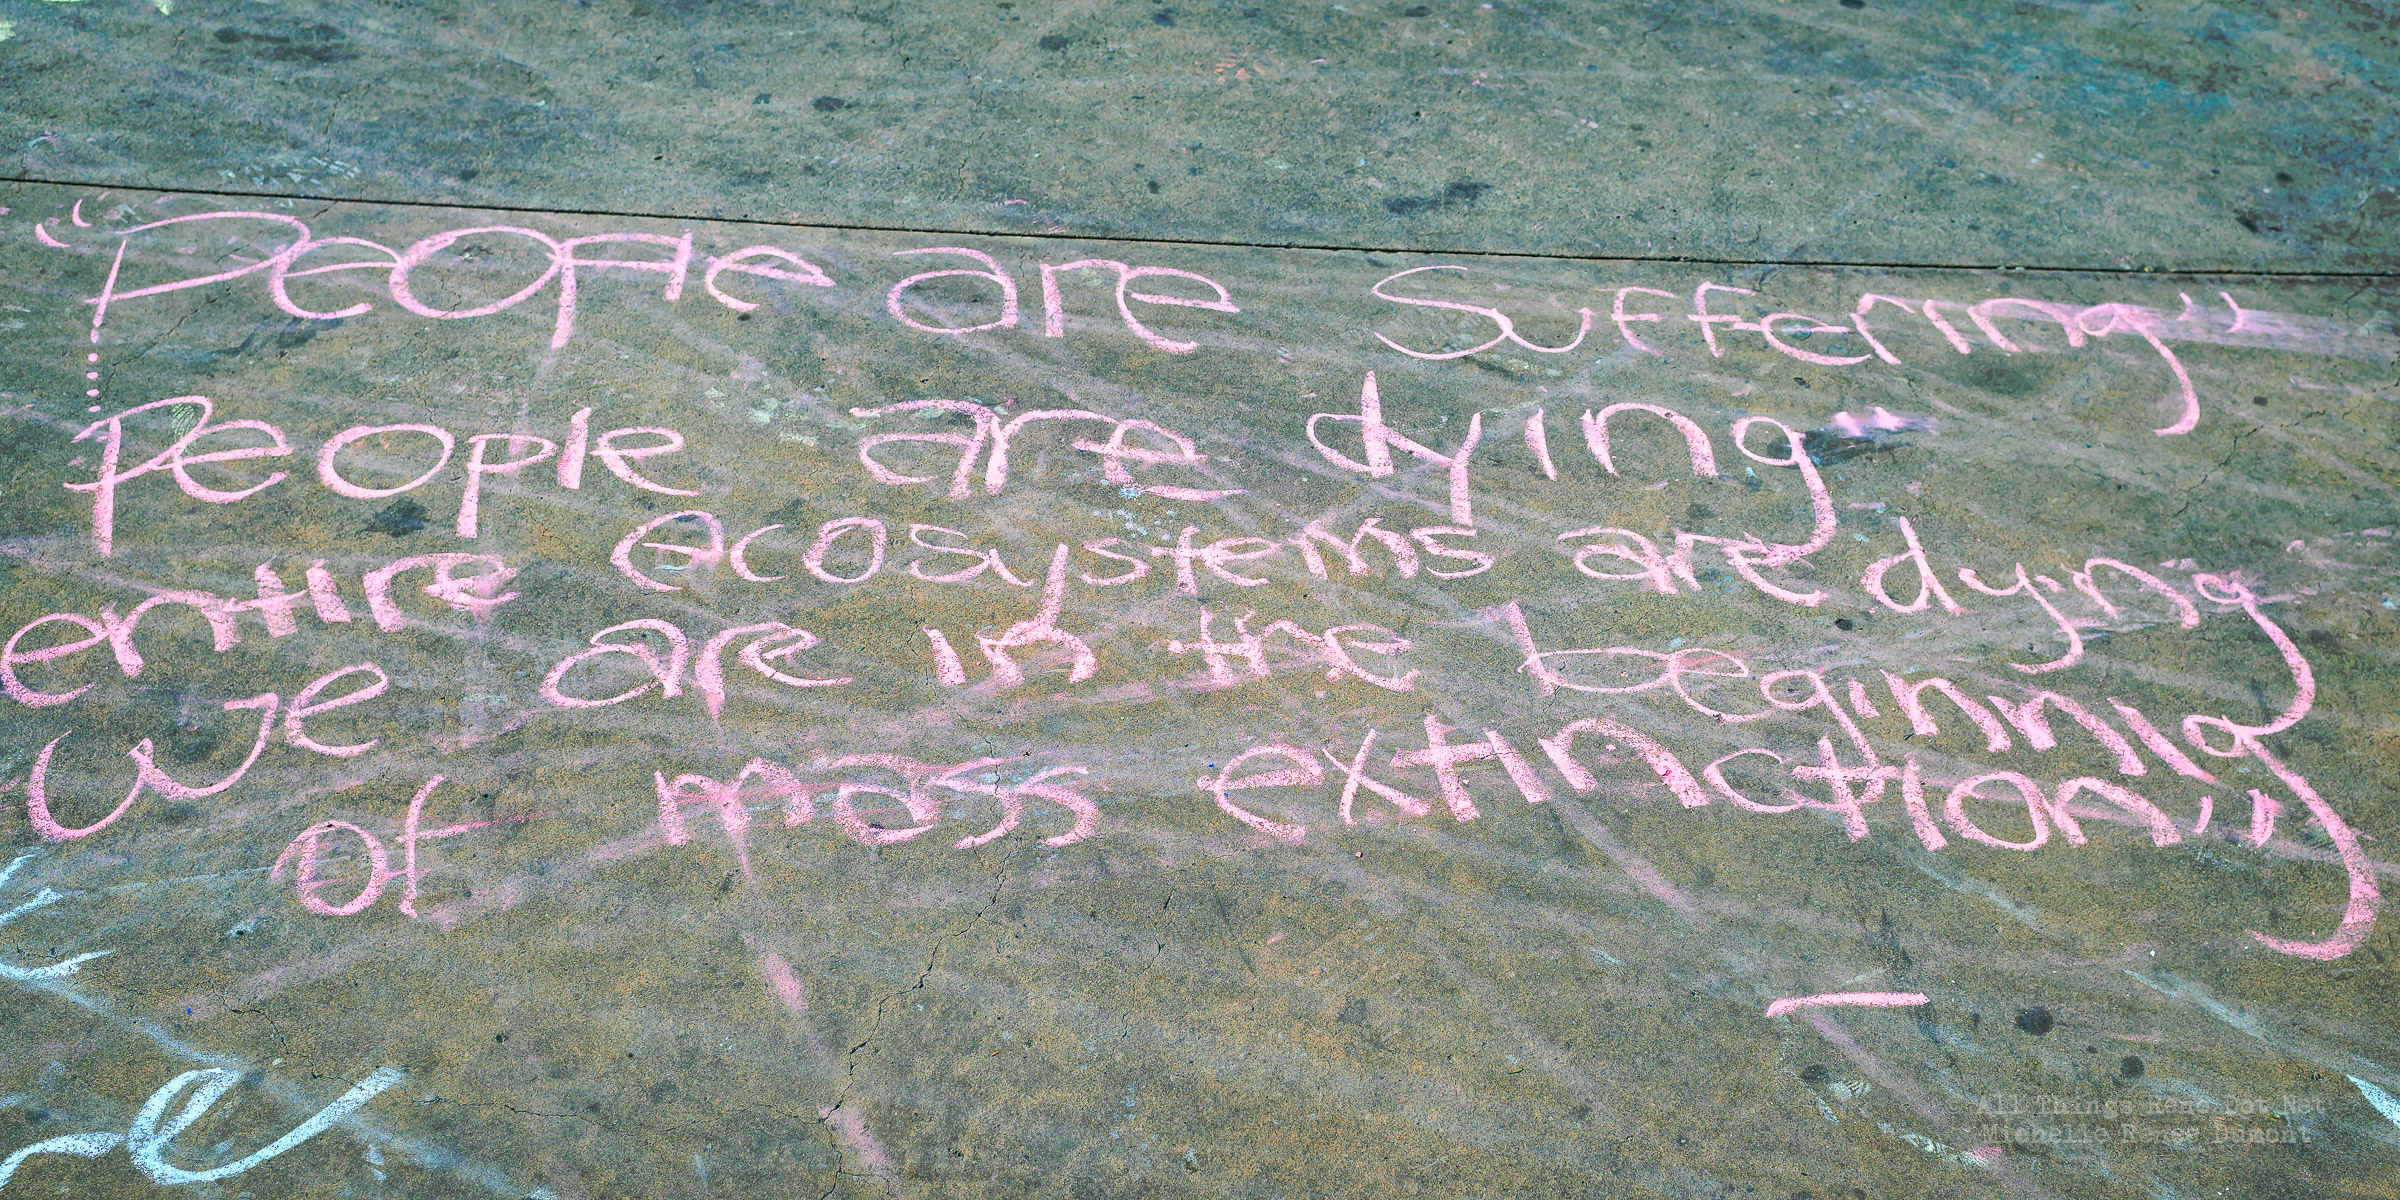 "People are suffering"
People are dying
entire ecosystems are dying
we are in the beginning
of mass extinction"
© All Things Rene Dot Net
Michelle Renee Dumont